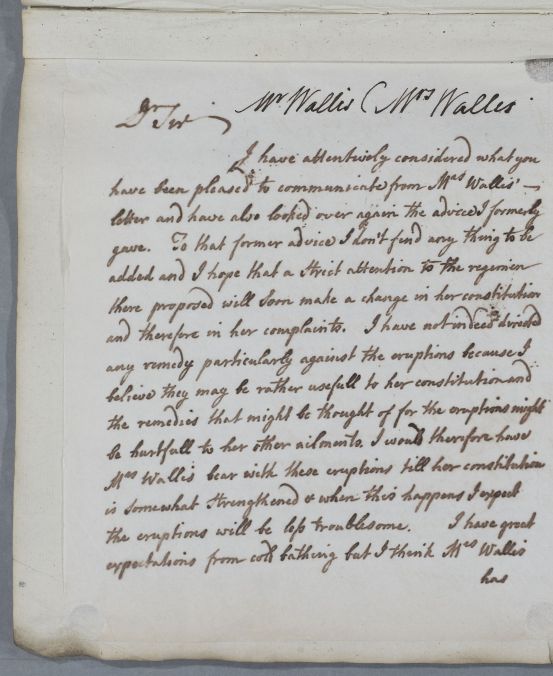 Mr Wallis (Mrs Wallis
Dr Sir
I have attentively considered what you
have been pleased to communicate from Mrs Wallis' —
letter and have also looked over again the advice I formerly
gave. To that former advice I don't find any thing to be
added and I hope that a strict attention to the regimen
there proposed will soon make a change in her constitution
and therefore in her complaints. I have not indeed directed
any remedy particularly against the eruptions because I
believe they may be rather usefull to her constitution and
the remedies that might be thought of for the eruptions might
be hurtfull to her other ailments. I would therefore have
Mrs Wallis bear with these eruptions till her constitution
is somewhat strengthened & when this happens I expect
the eruptions will be less troublesome. I have great
expectations from cold bathing but I think Mrs Wallis
has